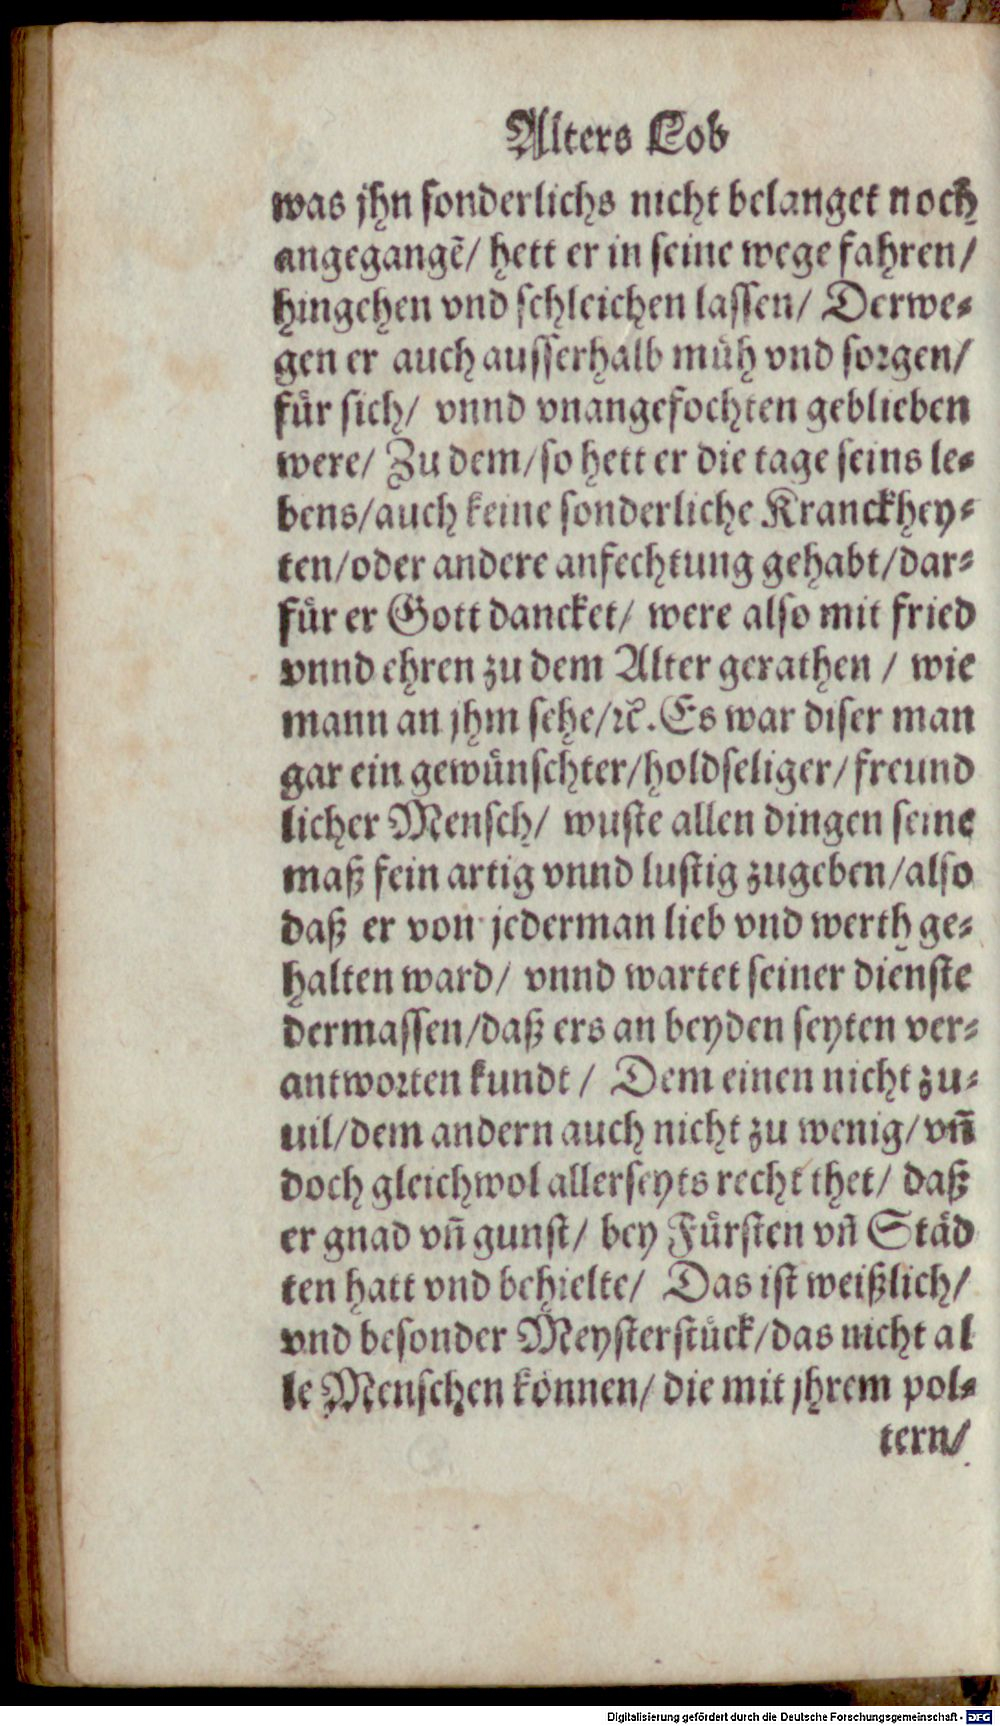 Alters Lob
was jhn sonderlichs nicht belanget noch
angegangẽ/ hett er in seine wege fahren/
hingehen vnd schleichen lassen/ Derwe⸗
gen er auch ausserhalb müh vnd sorgen/
fuͤr sich/ vnnd vnangefochten geblieben
were/ Zu dem/so hett er die tage seins le⸗
bens/auch keine sonderliche Kranckhey⸗
ten/oder andere anfechtung gehabt/dar⸗
fuͤr er Gott dancket/ were also mit fried
vnnd ehren zu dem Alter gerathen / wie
mann an jhm sehe/ꝛc̃. Es war diser man
gar ein gewuͤnschter/holdseliger/freund
licher Mensch/ wuste allen dingen seine
maß fein artig vnnd lustig zugeben/also
daß er von jederman lieb vnd werth ge⸗
halten ward/ vnnd wartet seiner dienste
dermassen/daß ers an beyden seyten ver⸗
antworten kundt / Dem einen nicht zu⸗
uil/dem andern auch nicht zu wenig/ vñ
doch gleichwol allerseyts recht thet/ daß
er gnad vñ gunst/ bey Fuͤrsten vñ Staͤd
ten hatt vnd behielte/ Das ist weißlich/
vnd besonder Meysterstuͤck/das nicht al
le Menschen koͤnnen/ die mit jhrem pol⸗
tern/
Digitalisierung gefördert durch die Deutsche Forschungsgemeinschaft - DFG